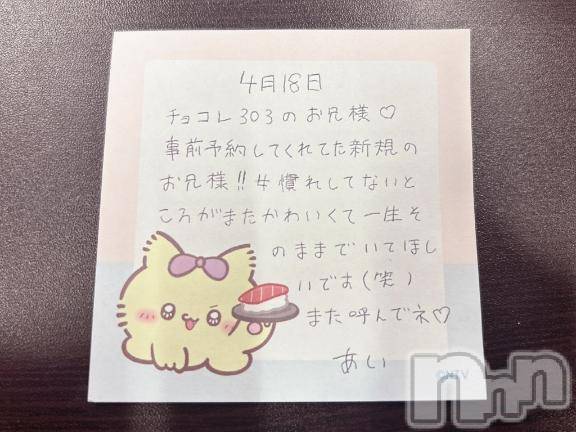 4月18日
チョコレ303のお兄様♡
事前予約してくれてた新規の
お兄様!!女慣れしてないと
ころがまたかわいくて一生そ
のままでいてほし
いです(笑)
また呼んでネ♡
あい
©NTV
nnn